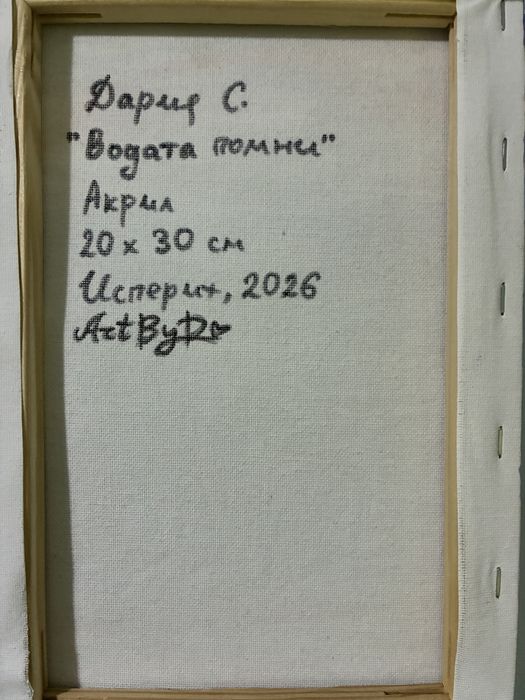 Дария С.
"Водата помни"
Акрил
20 x 30 см
Исперих, 2026
ArtByD♥